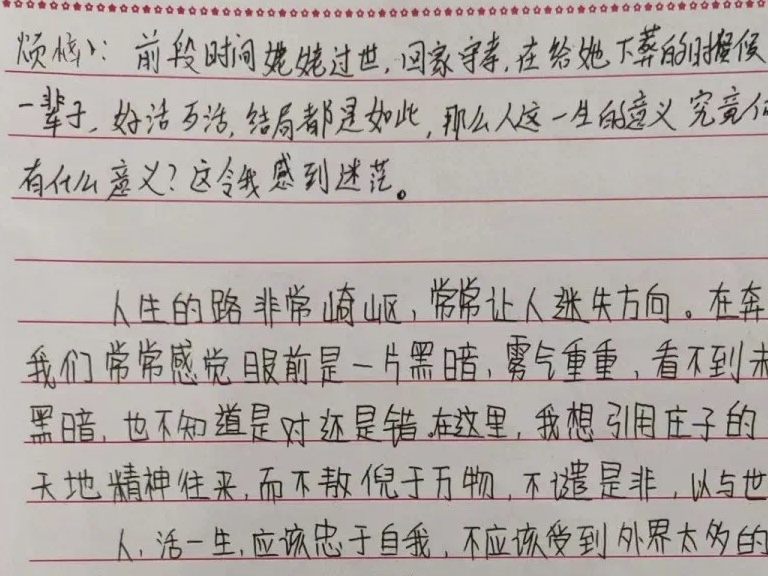 烦恼：前段时间姥姥过世，回家守孝，在给她下葬的时候
一辈子，好活歹活，结局都是如此，那么人这一生的意义究竟
有什么意义？这令我感到迷茫。
人生的路非常崎岖，常常让人迷失方向。在奔
我们常常感觉眼前是一片黑暗，雾气重重，看不到未
黑暗，也不知道是对还是错。在这里，我想引用庄子的
天地精神往来，而不敖倪于万物，不谴是非，以与世
人，活一生，应该忠于自我，不应该受到外界太多的